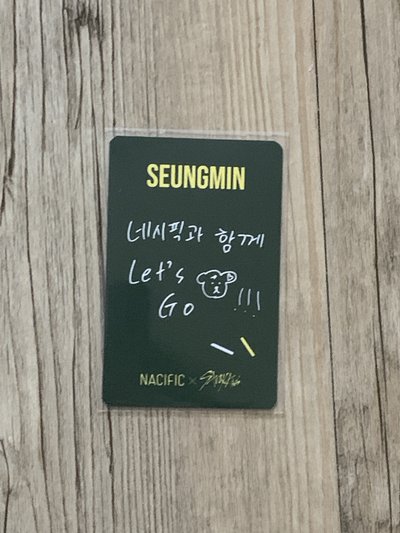 SEUNGMIN
네시픽과 함께
Let's
Go !!!
NACIFIC × StrayKids